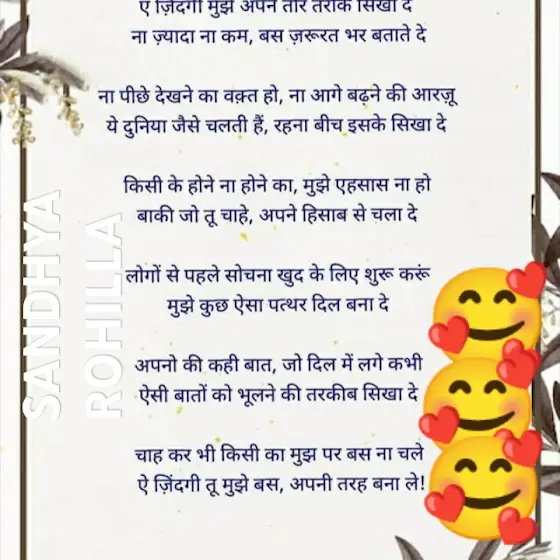 ऐ ज़िंदगी मुझे अपने तौर तरीके सिखा दे
ना ज़्यादा ना कम, बस ज़रूरत भर बताते दे
ना पीछे देखने का वक़्त हो, ना आगे बढ़ने की आरज़ू
ये दुनिया जैसे चलती हैं, रहना बीच इसके सिखा दे
किसी के होने ना होने का, मुझे एहसास ना हो
बाकी जो तू चाहे, अपने हिसाब से चला दे
लोगों से पहले सोचना खुद के लिए शुरू करूं
मुझे कुछ ऐसा पत्थर दिल बना दे
अपनो की कही बात, जो दिल में लगे कभी
ऐसी बातों को भूलने की तरकीब सिखा दे
चाह कर भी किसी का मुझ पर बस ना चले
ऐ ज़िंदगी तू मुझे बस, अपनी तरह बना ले!
SANDHYA
ROHILLA